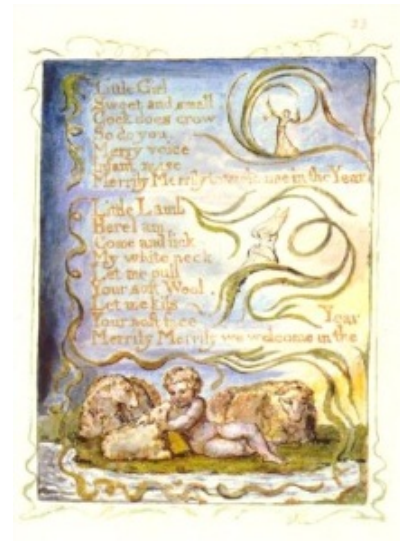 23
Little Girl
Sweet and small
Cock does crow
So do you.
Merry voice
Infant noise
Merrily Merrily to welcome in the Year
Little Lamb
Here I am,
Come and lick
My white neck
Let me pull
Your soft Wool.
Let me kiss
Your soft face
Merrily Merrily we welcome in the Year